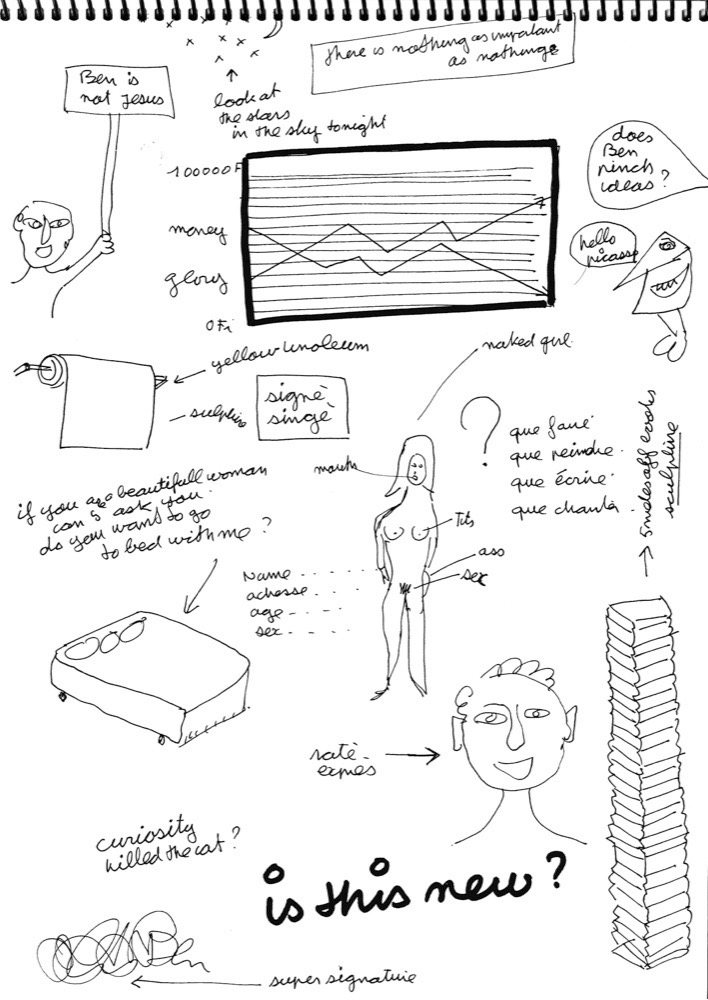 there is nothing as important
as nothing
Ben is
not Jesus
look at
the stars
in the sky tonight
does
Ben
pinch
ideas?
100000F
money
glory
0F
hello
picasso
yellow linoleum
naked girl
signé
singé
?
que faire
que peindre
que écrire
que chanter
→ 5 miles off books
sculpture
mouth
if you are a beautifull woman
can I ask you
do you want to go
to bed with me?
Tits
ass
sex
Name - - - -
adresse - - - -
age - - - -
sex - - - -
raté
exprès
curiosity
killed the cat?
is this new?
Ben
super signature